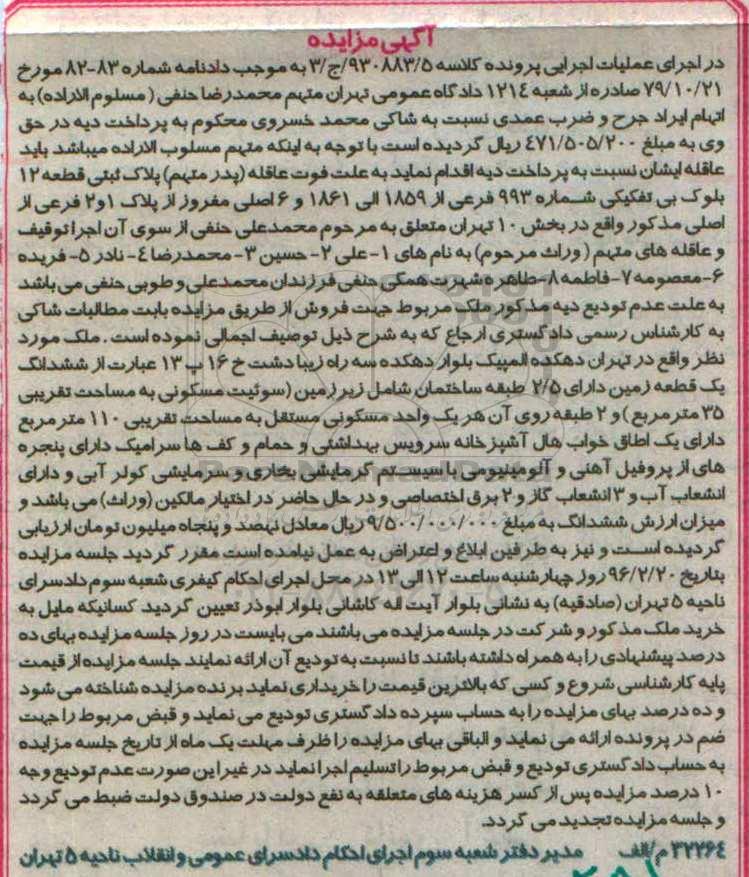 آگهی مزایده
در اجرای عملیات اجرایی پرونده کلاسه ۹۳۰۸۸۳/۵/ج/۳ به موجب دادنامه شماره ۸۳-۸۲ مورخ
۷۹/۱۰/۲۱ صادره از شعبه ۱۲۱۴ دادگاه عمومی تهران متهم محمدرضا حنفی (مسلوم الاراده) به
اتهام ایراد جرح و ضرب عمدی نسبت به شاکی محمد خسروی محکوم به پرداخت دیه در حق
وی به مبلغ ۴۷۱/۵۰۵/۲۰۰ ریال گردیده است با توجه به اینکه متهم مسلوب الاراده میباشد باید
عاقله ایشان نسبت به پرداخت دیه اقدام نماید به علت فوت عاقله (پدر متهم) پلاک ثبتی قطعه ۱۲
بلوک بی تفکیکی شماره ۹۹۳ فرعی از ۱۸۵۹ الی ۱۸۶۱ و ۶ اصلی مفروز از پلاک ۱و۲ فرعی از
اصلی مذکور واقع در بخش ۱۰ تهران متعلق به مرحوم محمدعلی حنفی از سوی آن اجرا توقیف
و عاقله های متهم (وراث مرحوم) به نام های ۱-علی ۲- حسین ۳- محمدرضا ۴- نادر ۵- فریده
۶-معصومه ۷-فاطمه ۸-طاهره شهرت همگی حنفی فرزندان محمدعلی و طوبی حنفی می باشد
به علت عدم تودیع دیه مذکور ملک مربوط جهت فروش از طریق مزایده بابت مطالبات شاکی
به کارشناس رسمی دادگستری ارجاع که به شرح ذیل توصیف اجمالی نموده است . ملک مورد
نظر واقع در تهران دهکده المپیک بلوار دهکده سه راه زیبا دشت خ ۱۶ پ ۱۳ عبارت از ششدانگ
یک قطعه زمین دارای ۲/۵ طبقه ساختمان شامل زیرزمین (سوئیت مسکونی به مساحت تقریبی
۳۵ متر مربع) و ۲ طبقه روی آن هر یک واحد مسکونی مستقل به مساحت تقریبی ۱۱۰ متر مربع
دارای یک اطاق خواب هال آشپزخانه سرویس بهداشتی و حمام و کف ها سرامیک دارای پنجره
های از پروفیل آهنی و آلومینیومی با سیستم گرمایشی بخاری و سرمایشی کولر آبی و دارای
انشعاب آب و ۳ انشعاب گاز و ۲ برق اختصاصی و در حال حاضر در اختیار مالکین (وراث) می باشد و
میزان ارزش ششدانگ به مبلغ ۹/۵۰۰/۰۰۰/۰۰۰ ریال معادل نهصد و پنجاه میلیون تومان ارزیابی
گردیده است و نیز به طرفین ابلاغ و اعتراض به عمل نیامده است مقرر گردید جلسه مزایده
بتاریخ ۹۶/۲/۲۰ روز چهارشنبه ساعت ۱۲ الی ۱۳ در محل اجرای احکام کیفری شعبه سوم دادسرای
ناحیه ۵ تهران (صادقیه) به نشانی بلوار آیت اله کاشانی بلوار ابوذر تعیین گردید کسانیکه مایل به
خرید ملک مذکور و شرکت در جلسه مزایده می باشند می بایست در روز جلسه مزایده بهای ده
درصد پیشنهادی را به همراه داشته باشند تا نسبت به تودیع آن ارائه نمایند جلسه مزایده از قیمت
پایه کارشناسی شروع و کسی که بالاترین قیمت را خریداری نماید برنده مزایده شناخته می شود
و ده درصد بهای مزایده را به حساب سپرده دادگستری تودیع می نماید و قبض مربوط را جهت
ضم در پرونده ارائه می نماید و الباقی بهای مزایده را ظرف مهلت یک ماه از تاریخ جلسه مزایده
به حساب دادگستری تودیع و قبض مربوط را تسلیم اجرا نماید در غیر این صورت عدم تودیع وجه
۱۰ درصد مزایده پس از کسر هزینه های متعلقه به نفع دولت در صندوق دولت ضبط می گردد
و جلسه مزایده تجدید می گردد.
۳۲۲۶۴ م/الف مدیر دفتر شعبه سوم اجرای احکام دادسرای عمومی و انقلاب ناحیه ۵ تهران